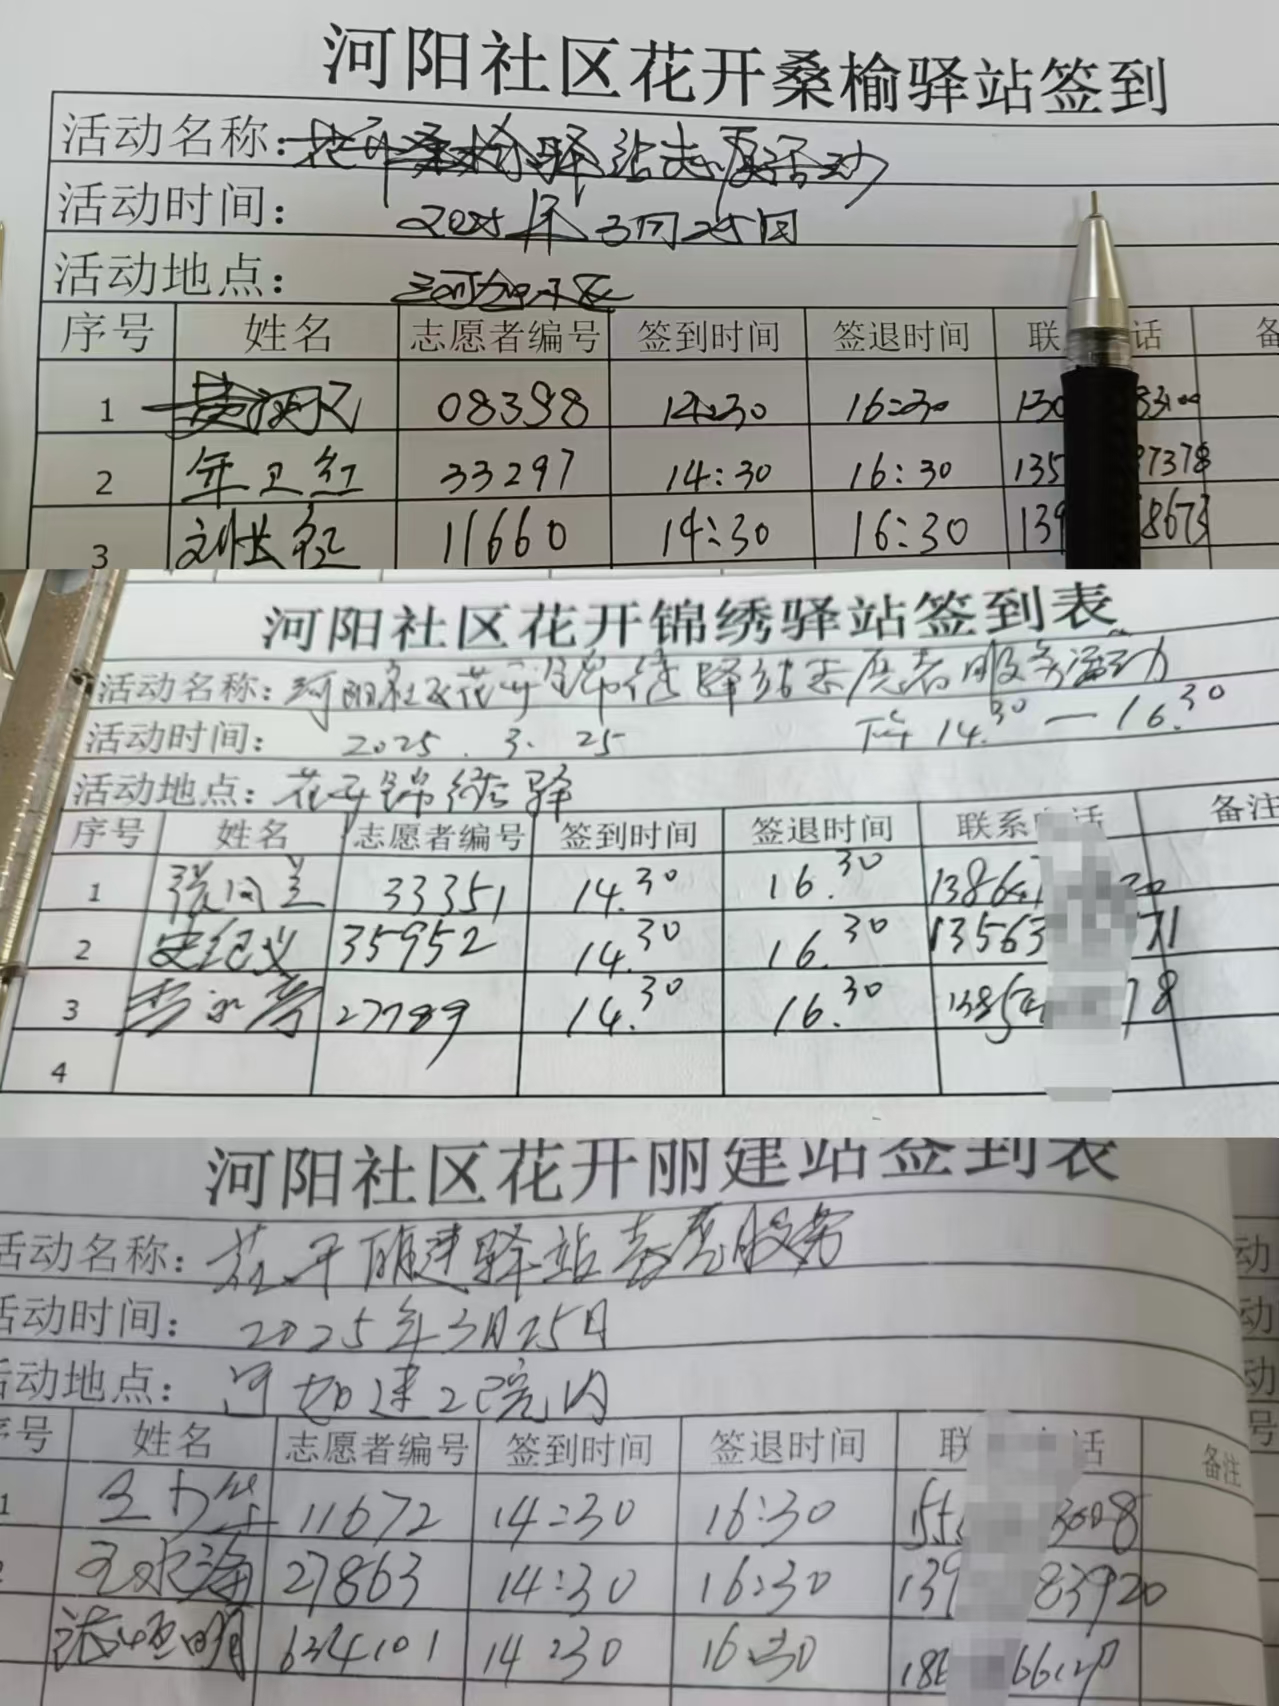 河阳社区花开桑榆驿站签到
活动名称：花开桑榆驿站志愿活动
活动时间： 2025年3月25日
活动地点：
序号 姓名 志愿者编号 签到时间 签退时间 联 话 备
1 08398 14:30 16:30 130
2 年卫红 33297 14:30 16:30 135 97378
3 刘长征 11660 14:30 16:30 139 8673
河阳社区花开锦绣驿站签到表
活动名称：河阳社区花开锦绣驿站志愿者服务活动
活动时间： 2025.3.25 下午14.30—16.30
活动地点：花开锦绣驿
序号 姓名 志愿者编号 签到时间 签退时间 联系 话 备注
1 张同兰 33351 14.30 16.30 13864
2 史纪义 35952 14.30 16.30 13563 71
3 27789 14.30 16.30 1385 78
4
河阳社区花开丽建站签到表
活动名称：花开丽建驿站志愿服务
活动时间： 2025年3月25日
活动地点： 建工院内
序号 姓名 志愿者编号 签到时间 签退时间 联 话 备注
1 11672 14:30 16:30 155 3008
王水海 27863 14:30 16:30 139 83920
634101 14:30 16:30 186